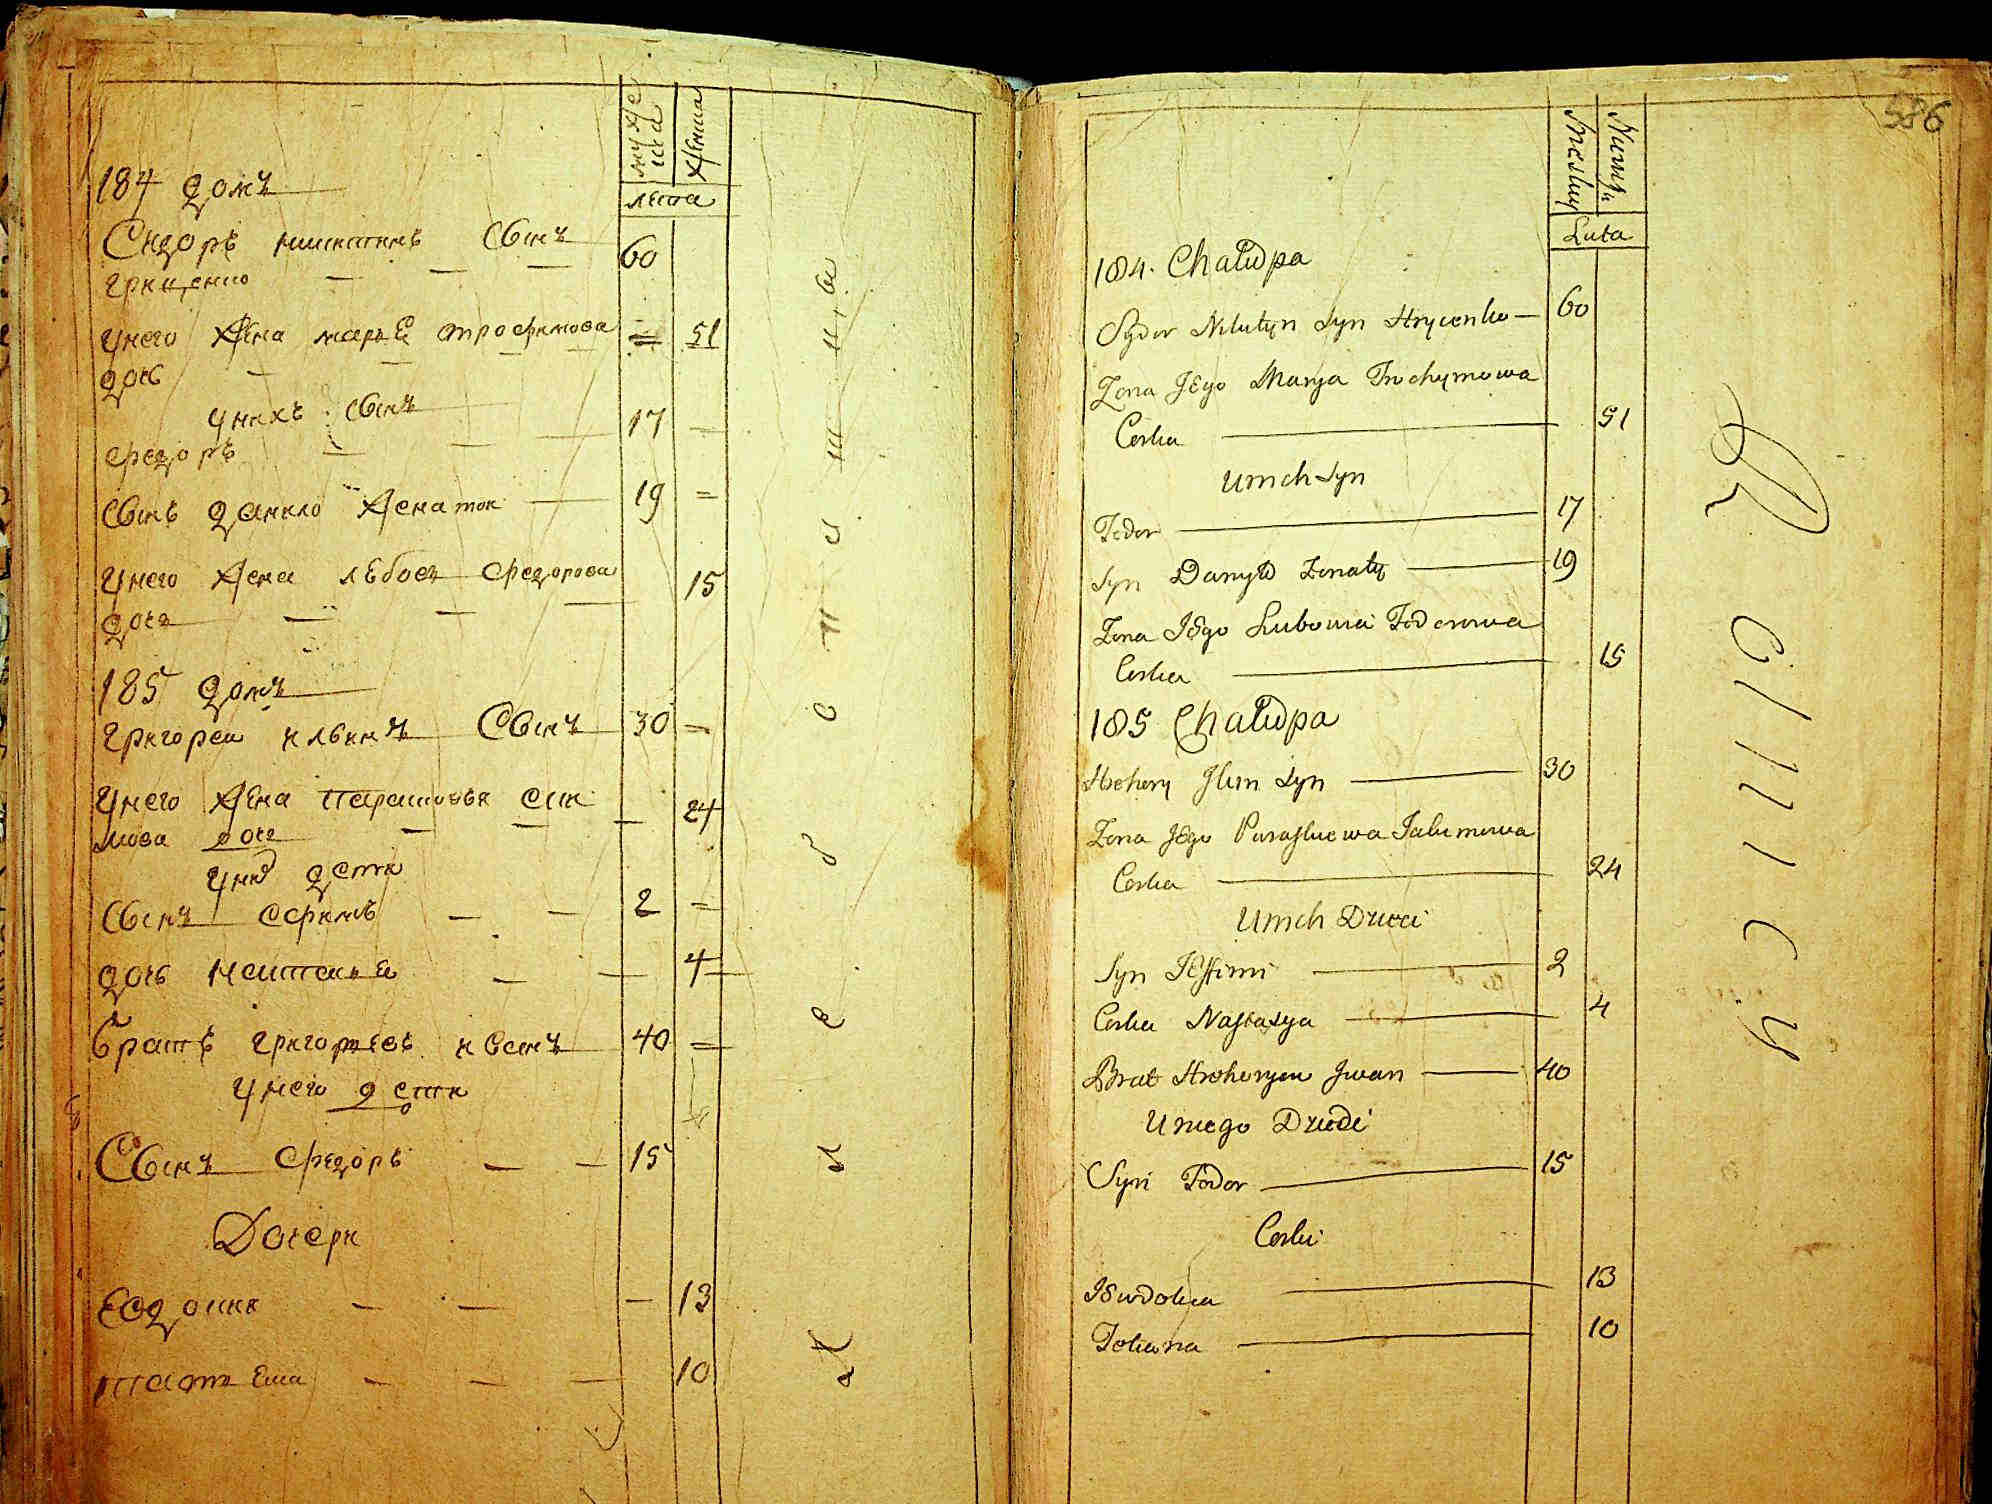 мужеска
женска
лета
184 домъ
Сидоръ никитинъ Сынъ
грищенко
60
унего жена марья трофимова
дочь
51
унихъ сынъ
федоръ
17
сынъ данило женатои
19
унего жена любовь федорова
дочь
15
185 домъ
григореи ильинъ Сынъ
30
унего жена парасковья еки
мова дочь
24
унихъ дети
сынъ ефимъ
2
дочь настасья
4
братъ григорьевъ иванъ
40
унего дети
Сынъ федоръ
15
Дочери
Евдокия
13
татьяна
10
586
Męskiey
Luta
184. Chałupa
Sydor Nikityn Syn Hrycenko
60
Zona Jego Marya Trochymowa
Corka
51
Unich Syn
Fedor
17
Syn Danyło Zonaty
19
Zona Jego Lubowia Fedorowa
Corka
15
185 Chałupa
Hrehory Jlin Syn
30
Zona Jego Paraskiewa Jakimowa
Corka
24
Unich Dzieci
Syn Jeffim
2
Corka Nastasya
4
Brat Hrehoryew Jwan
40
U niego Dzieci
Syn Fedor
15
Corki
Jewdokia
13
Tetiana
10
Rolnicy